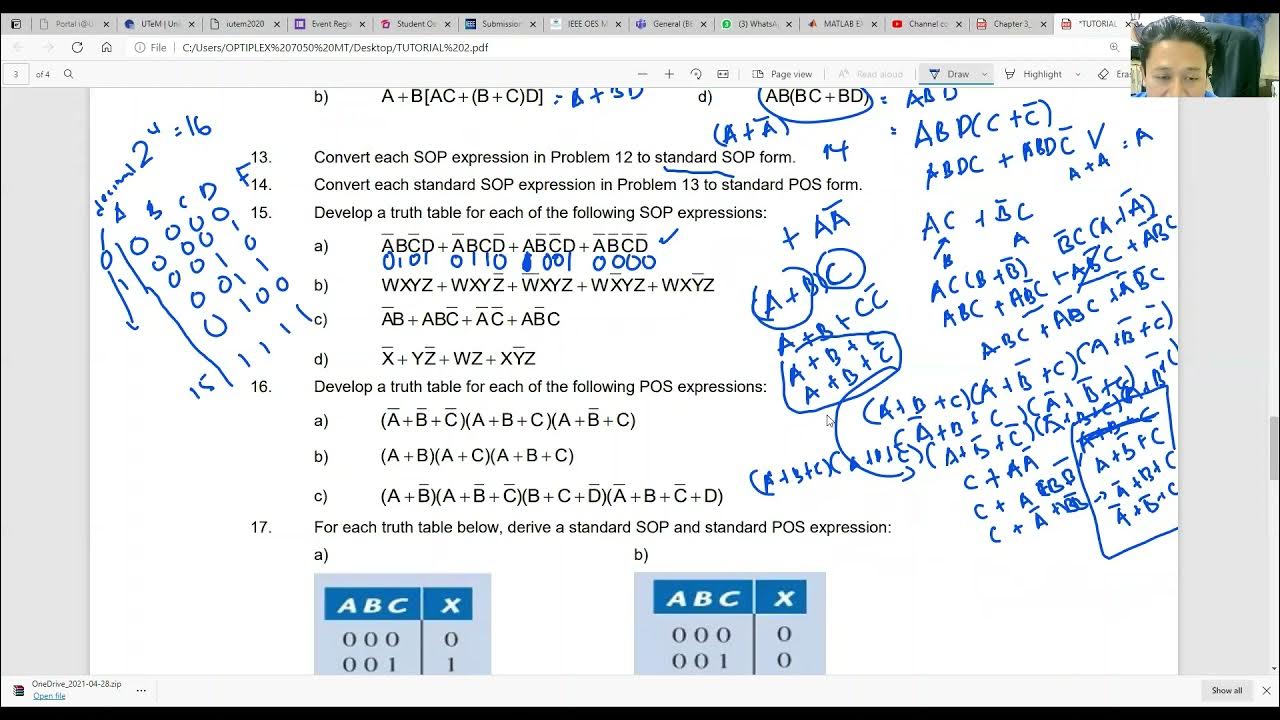 Portal i@U
UTeM | Uni
iutem2020
Event Regis
Student Or
Submission
IEEE OES M
General (BE
(3) WhatsA
MATLAB EX
Channel co
Chapter 3_
*TUTORIAL
File | C:/Users/OPTIPLEX%207050%20MT/Desktop/TUTORIAL%202.pdf
3 of 4
Page view
Read aloud
Draw
Highlight
Eras
b) A + B[AC + (B + C)D] = A + BD
d) AB(BC + BD) = ABD
(A + A̅)
= ABD(C + C̅)
2⁴ = 16
13. Convert each SOP expression in Problem 12 to standard SOP form.
14
ABDC + ABDC̅
A + A = A
14. Convert each standard SOP expression in Problem 13 to standard POS form.
decimal
A B C D F
15. Develop a truth table for each of the following SOP expressions:
+ AA̅
AC + B̅C
B̅C(A + A̅)
a) A̅BC̅D + A̅BCD̅ + AB̅C̅D + A̅B̅C̅D̅
0101 0110 1001 0000
b) WXYZ + WXYZ̅ + W̅XYZ + WX̅YZ + WXY̅Z
(A + B) C
AC(B + B̅)
ABC + AB̅C + AB̅C + A̅B̅C
c) A̅B + ABC̅ + A̅C̅ + AB̅C
A + B + CC̅
ABC + AB̅C + A̅B̅C
d) X̅ + YZ̅ + WZ + XY̅Z
A + B + C
A + B + C̅
15
16. Develop a truth table for each of the following POS expressions:
a) (A̅ + B̅ + C̅)(A + B + C)(A + B̅ + C)
b) (A + B)(A + C)(A + B + C)
C + AA̅
A + B̅ + C
c) (A + B̅)(A + B̅ + C̅)(B + C + D̅)(A̅ + B + C̅ + D)
A̅ + B + C
A̅ + B̅ + C
17. For each truth table below, derive a standard SOP and standard POS expression:
a)
b)
A B C X
0 0 0 0
0 0 1 1
A B C X
0 0 0 0
0 0 1 0
OneDrive_2021-04-28.zip
Open file
Show all